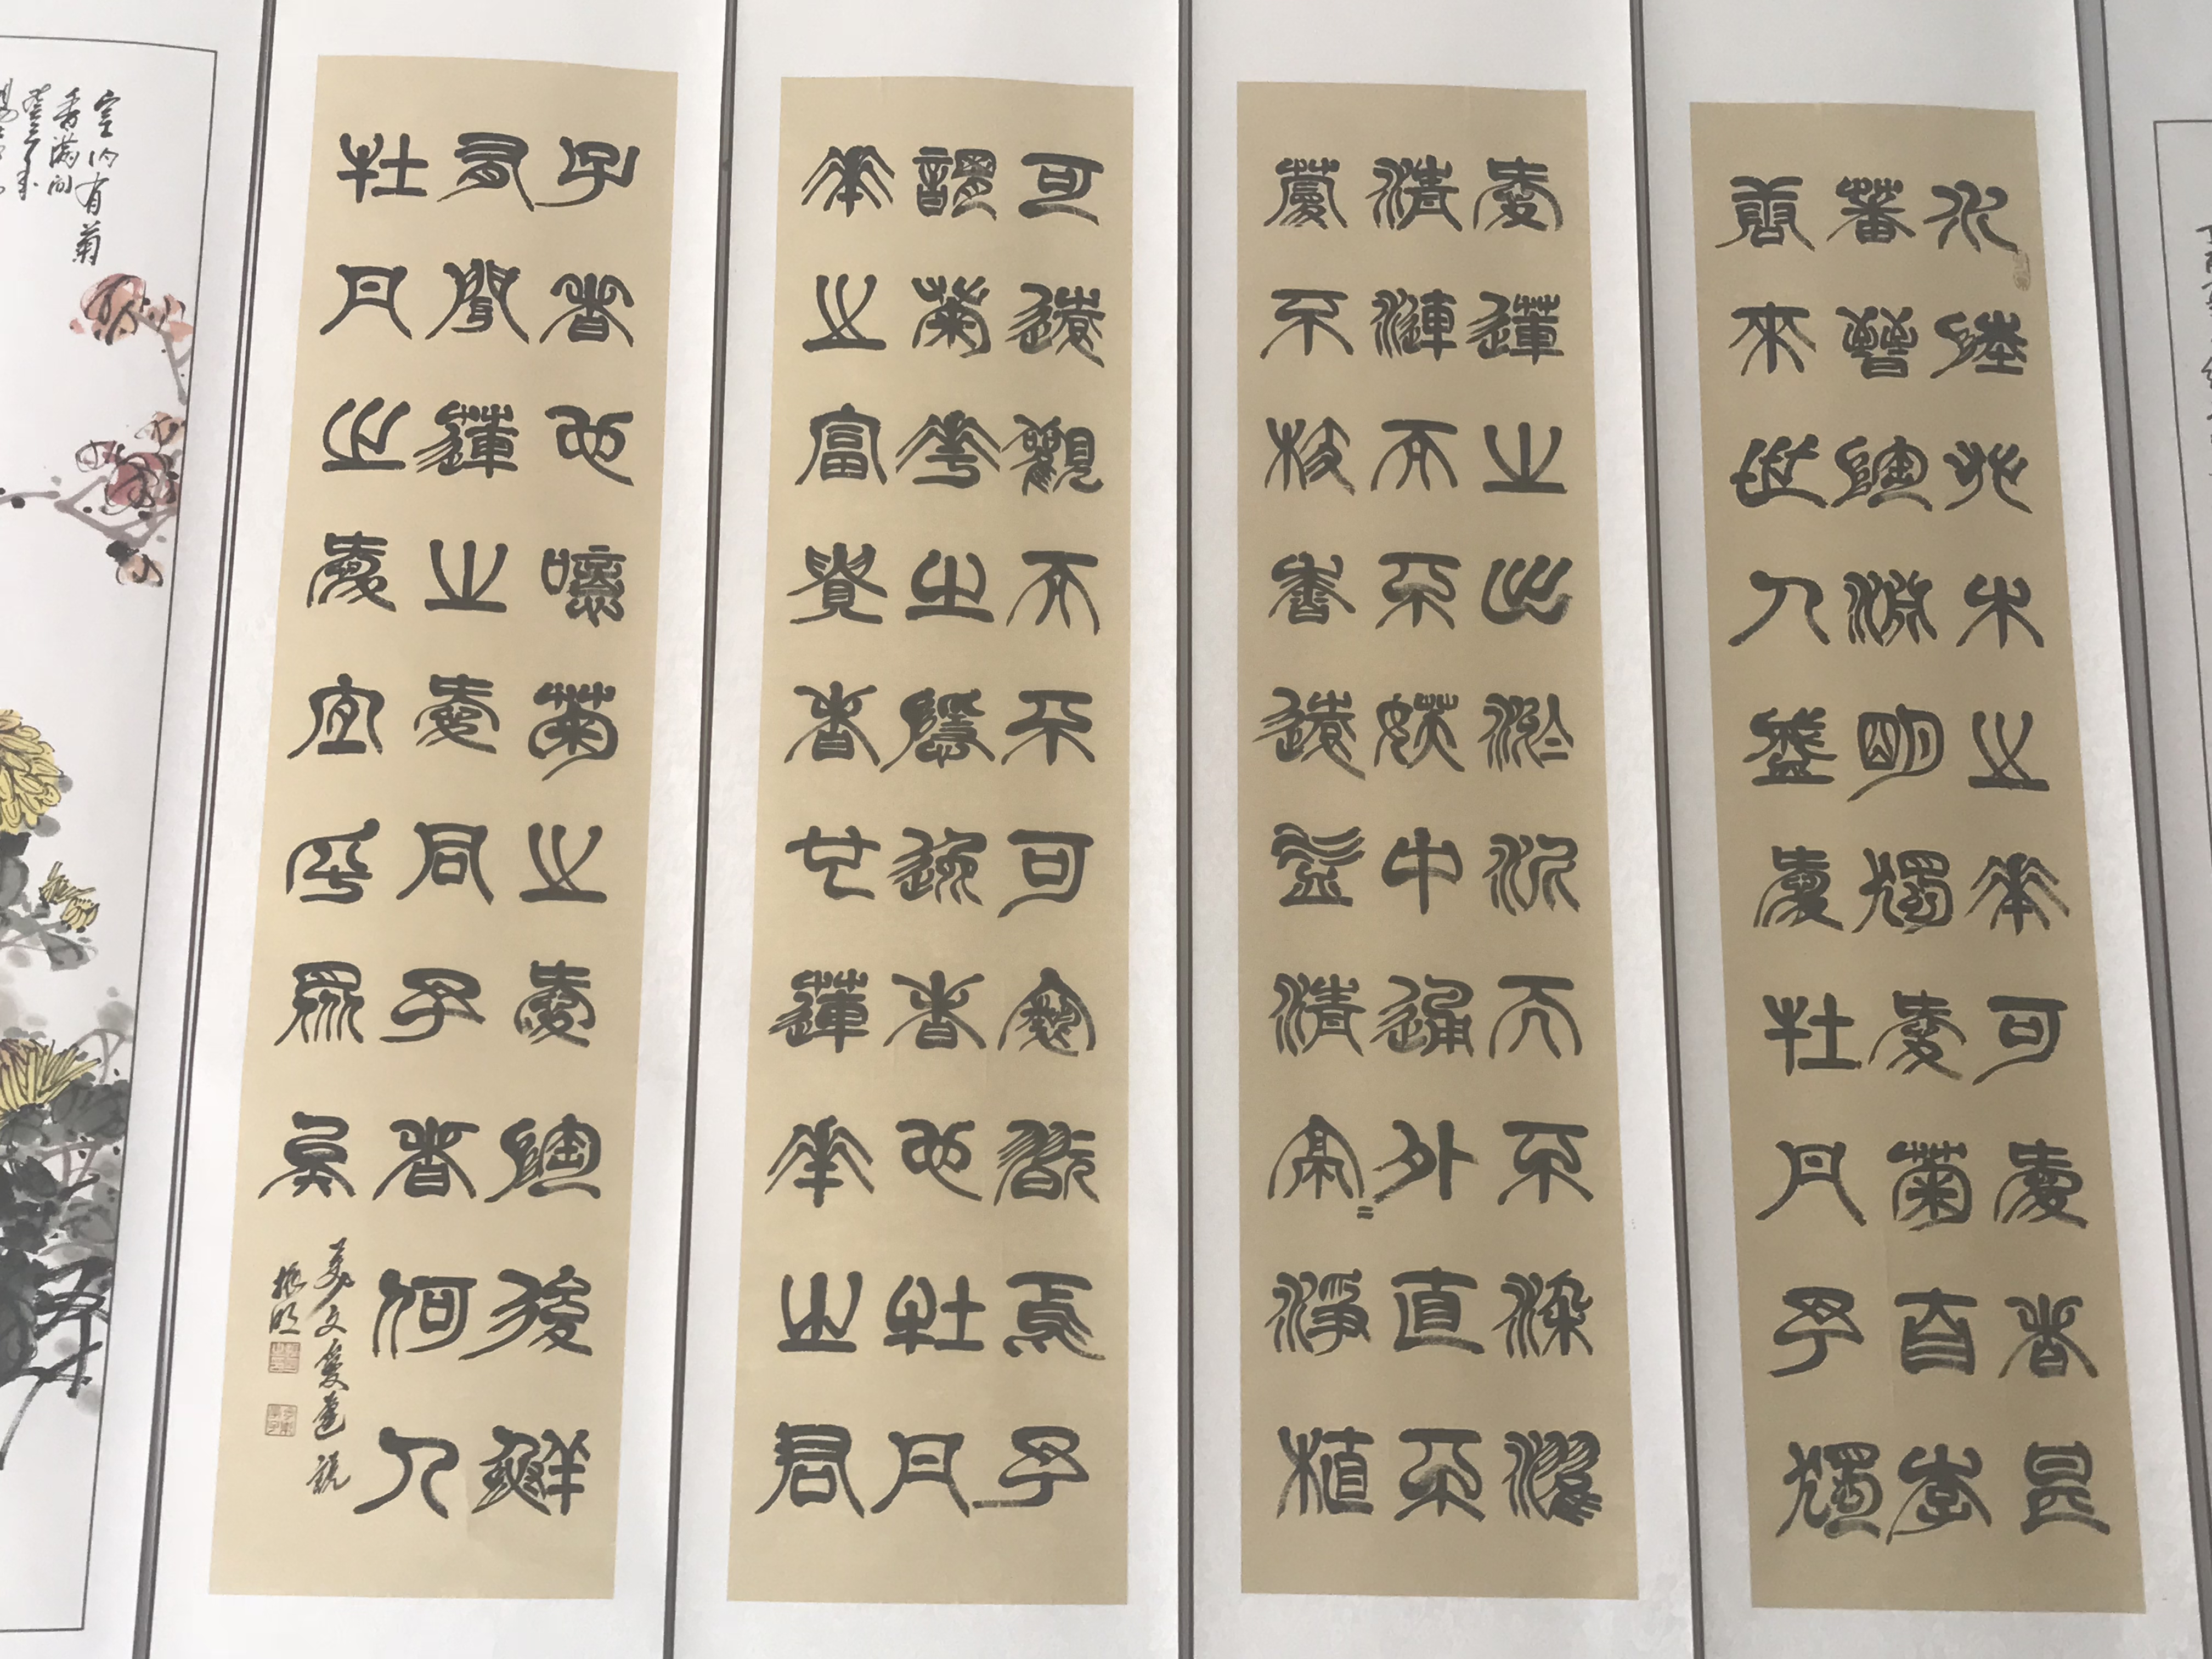 水陸艸木之華可愛者甚
蕃晉陶淵明獨愛菊自李
唐來世人盛愛牡丹予獨
愛蓮之出淤泥而不染濯
清漣而不妖中通外直不
蔓不枝香遠益清亭〻淨植
可遠觀而不可褻翫焉予
謂菊華之隱逸者也牡丹
華之富貴者也蓮華之君
子者也噫菊之愛陶後鮮
有聞蓮之愛同予者何人
牡丹之愛宜乎眾矣
美文愛蓮說
振明
室内有菊
香滿间